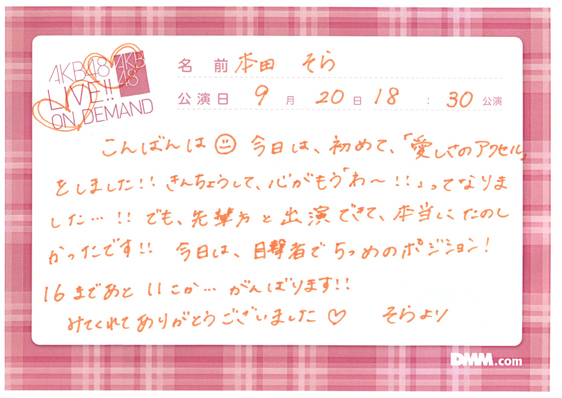 AKB48 AKB48
LIVE!!
ON DEMAND
名 前 本田 そら
公演日 9 月 20 日 18 : 30 公演
こんばんは☺ 今日は、初めて、「愛しさのアクセル」
をしました!! きんちょうして、心がもう「わ〜!!」ってなりま
した…!! でも、先輩方と出演できて、本当にたのし
かったです!! 今日は、目撃者で5つめのポジション!
16まであと11こか… がんばります!!
みてくれてありがとうございました♡ そらより
DMM.com